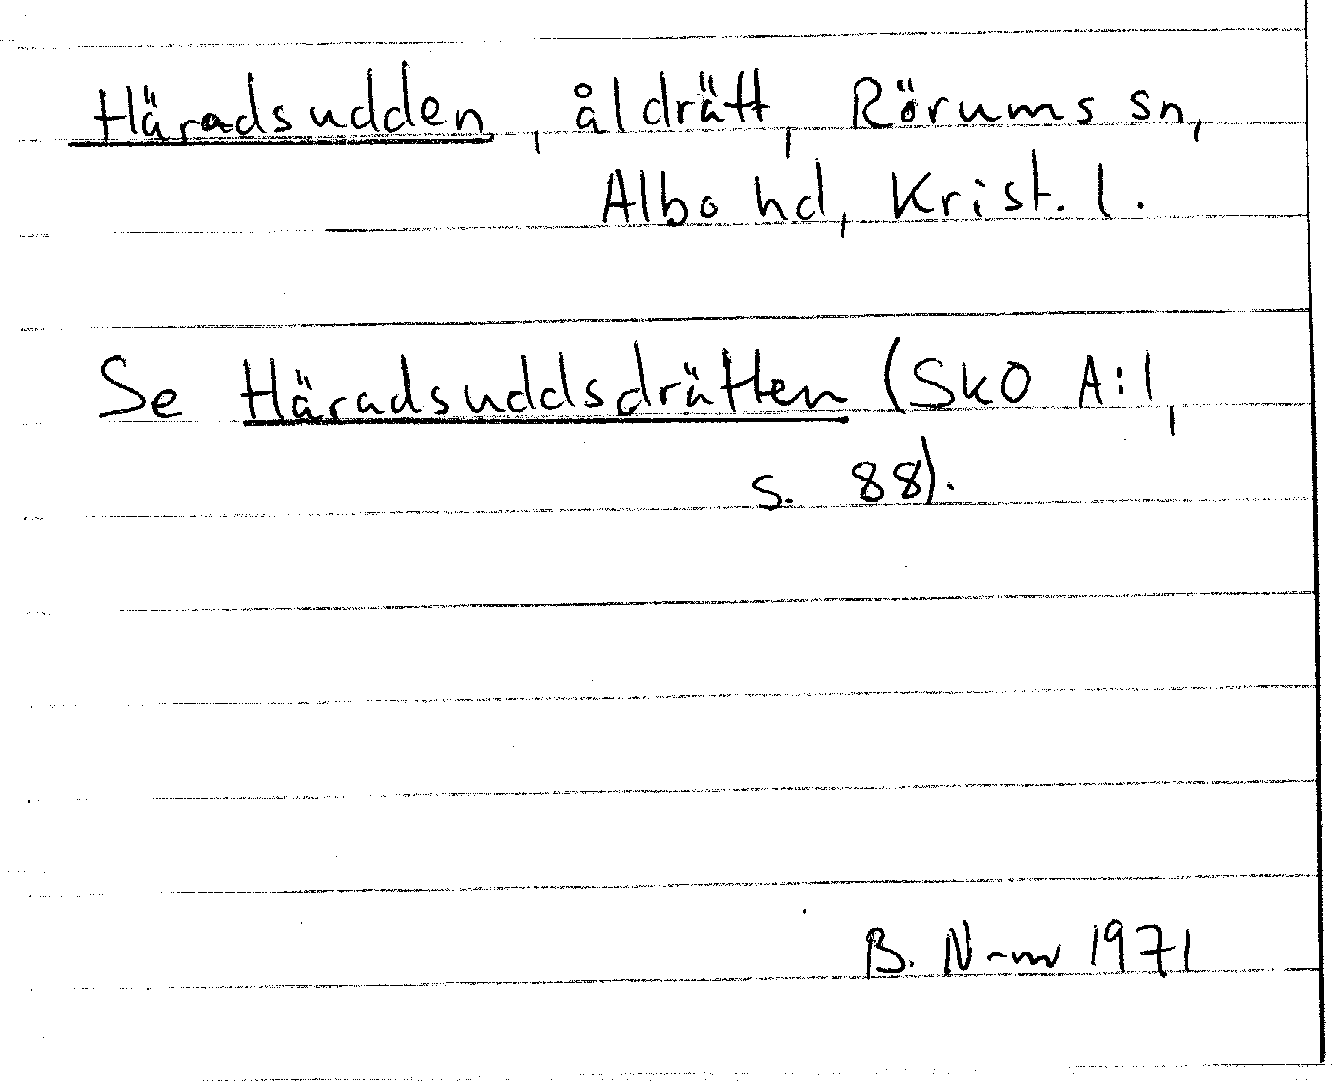 Häradsudden, åldrätt, Rörums sn,
Albo hd, Krist. l.
Se Häradsuddsdrätten (SkO A:1,
s. 88).
B. N-m 1971